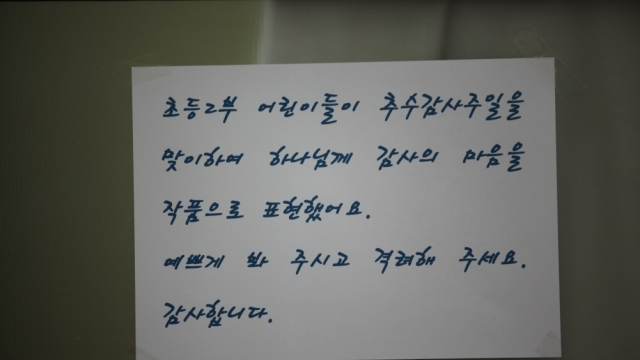 초등2부 어린이들이 추수감사주일을
맞이하여 하나님께 감사의 마음을
작품으로 표현했어요.
예쁘게 봐 주시고 격려해 주세요.
감사합니다.